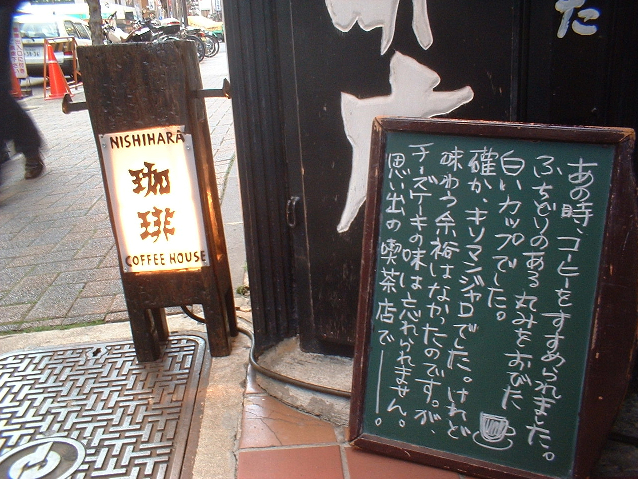 NISHIHARA
珈
琲
COFFEE HOUSE
た
あの時、コーヒーをすすめられました。
ふちどりのある丸みをおびた
白いカップでした。
確か、キリマンジャロでした。けれど
味わう余裕はなかったのです。が、
チーズケーキの味は忘れられません。
思い出の喫茶店で——